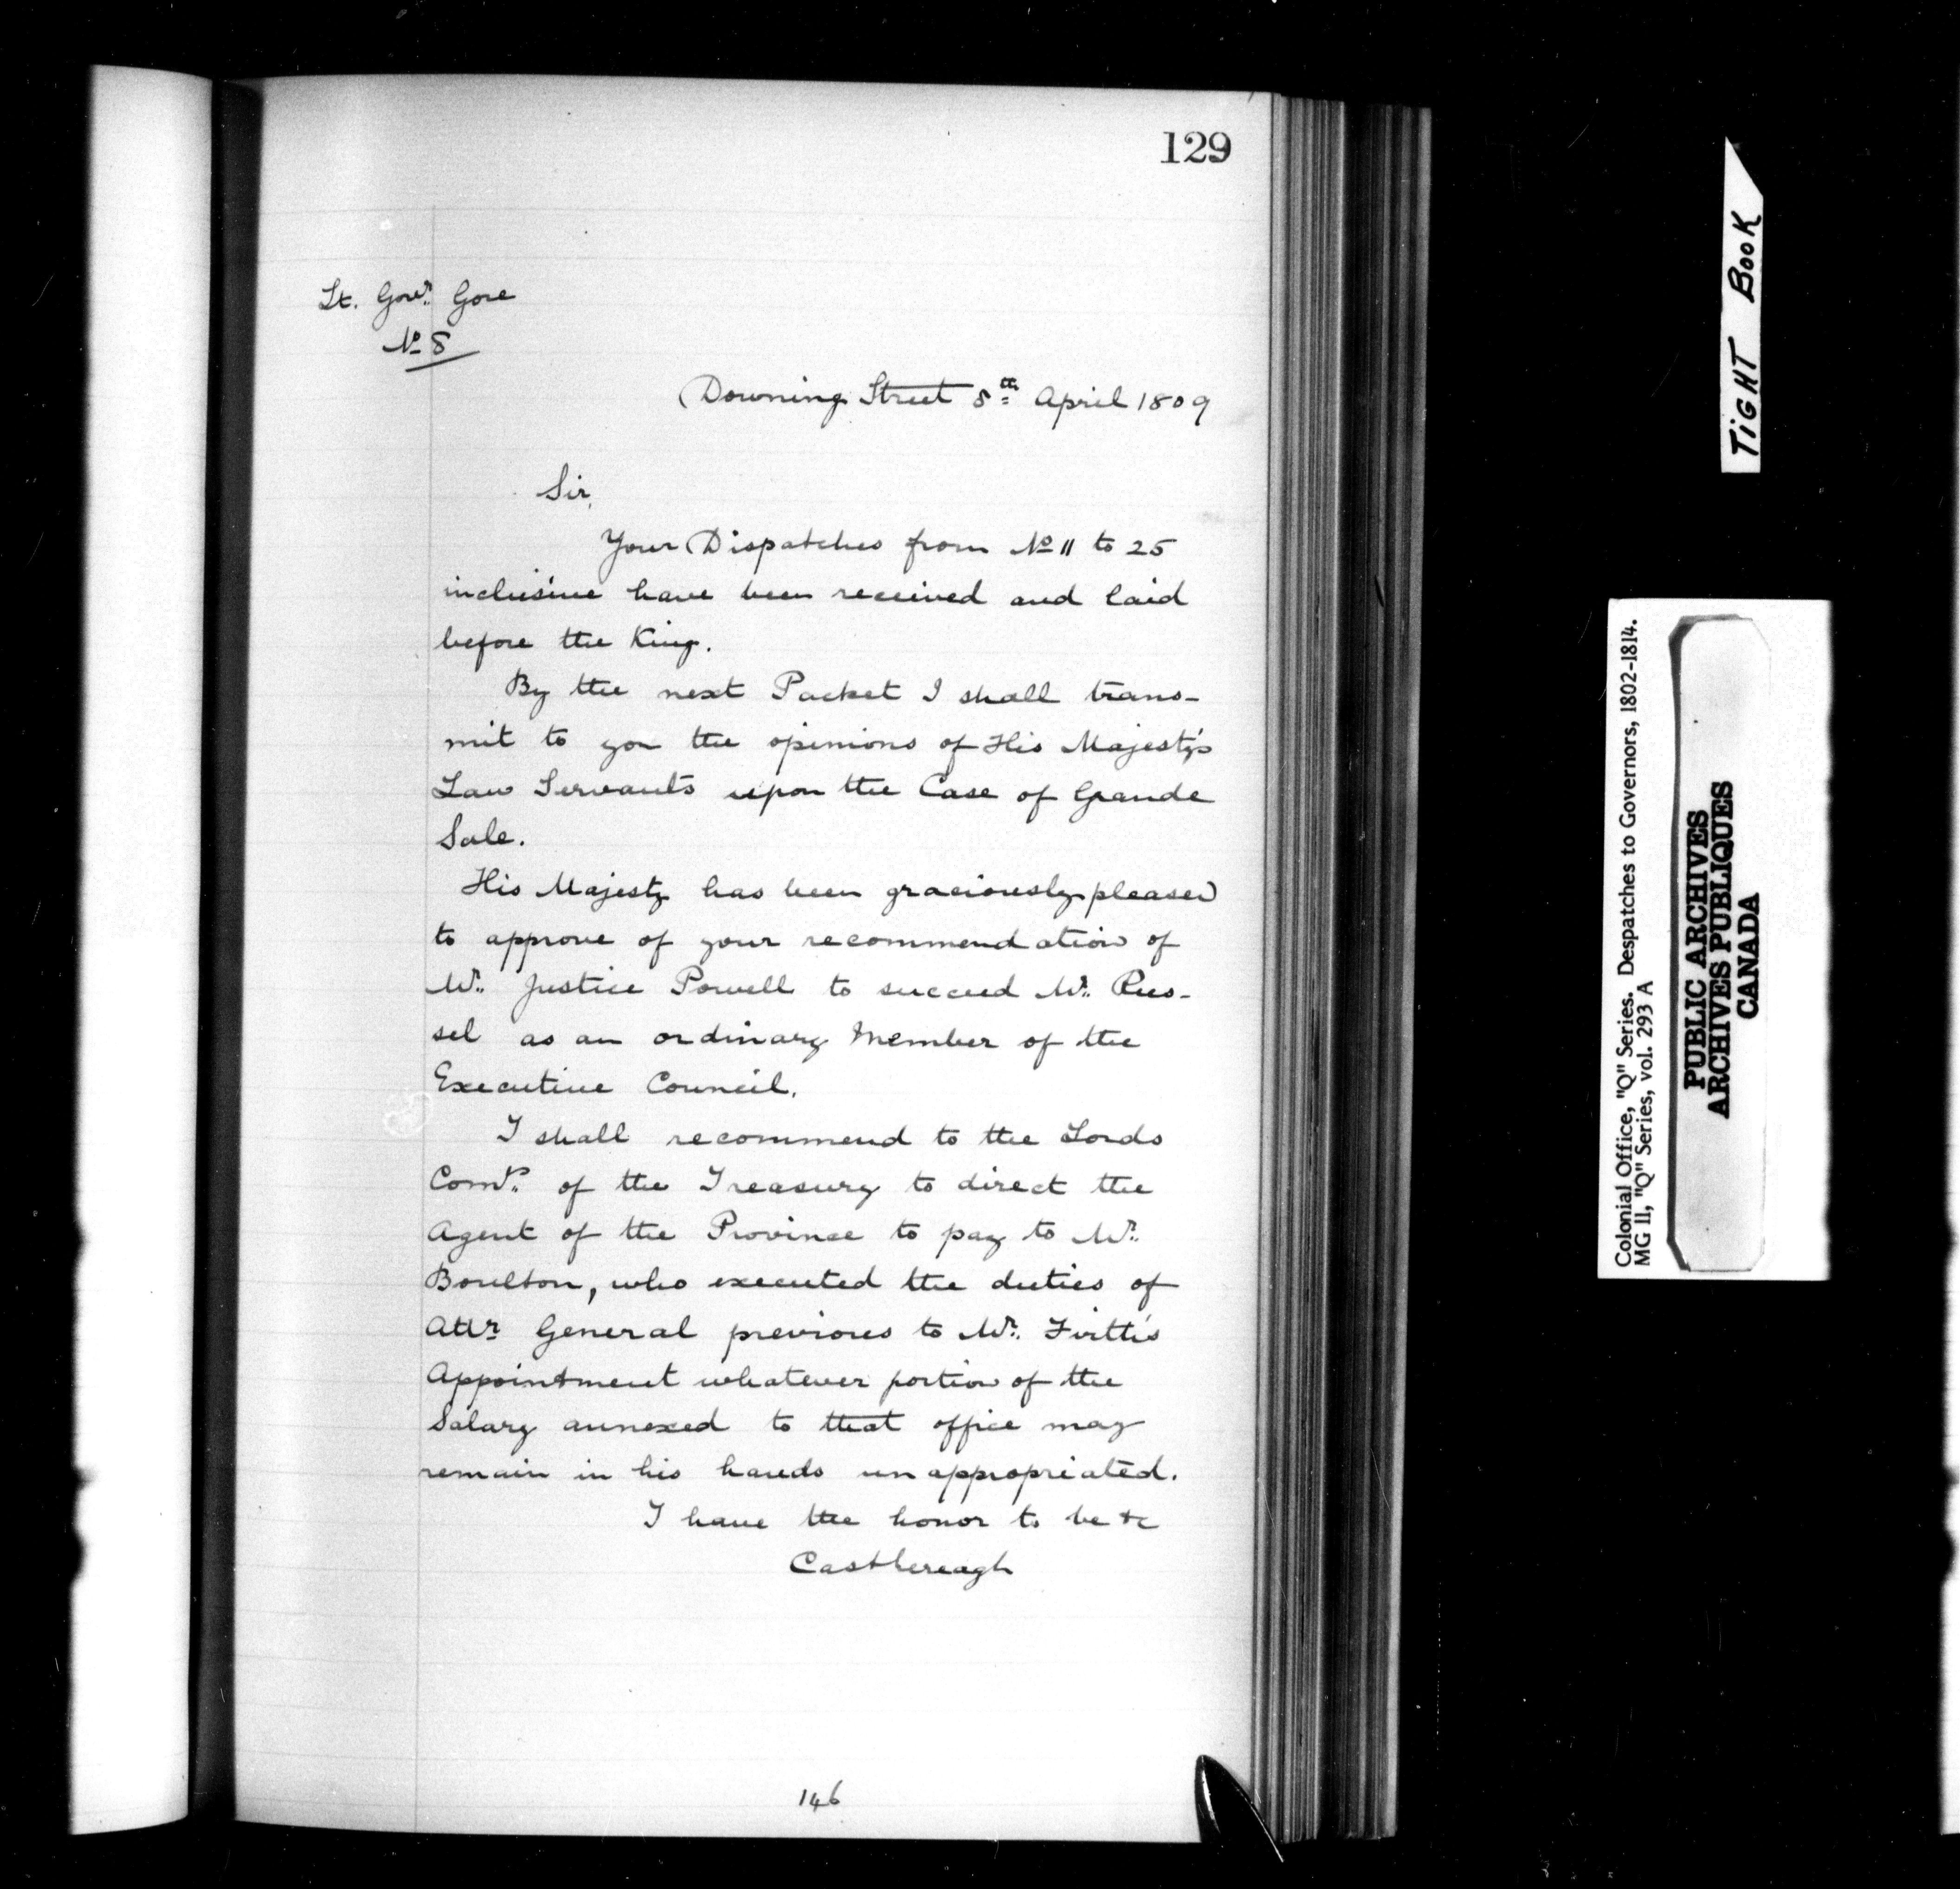 129
Lt. Govr. Gore
No 8
Downing Street 8th April 1809
Sir,
Your Dispatches from No 11 to 25
inclusive have been received and laid
before the King.
By the next Packet I shall trans-
mit to you the opinions of His Majesty's
Law Servants upon the Case of Grande
Sale.
His Majesty has been graciously pleased
to approve of your recommendation of
Mr. Justice Powell to succeed Mr. Rus-
sel as an ordinary Member of the
Executive Council.
I shall recommend to the Lords
Comrs. of the Treasury to direct the
Agent of the Province to pay to Mr.
Boulton, who executed the duties of
Attr General previous to Mr. Firth's
Appointment whatever portion of the
Salary annexed to that office may
remain in his hands unappropriated.
I have the honor to be &c
Castlereagh
146
TIGHT BOOK
Colonial Office, "Q" Series. Despatches to Governors, 1802-1814.
MG 11, "Q" Series, vol. 293 A
PUBLIC ARCHIVES
ARCHIVES PUBLIQUES
CANADA